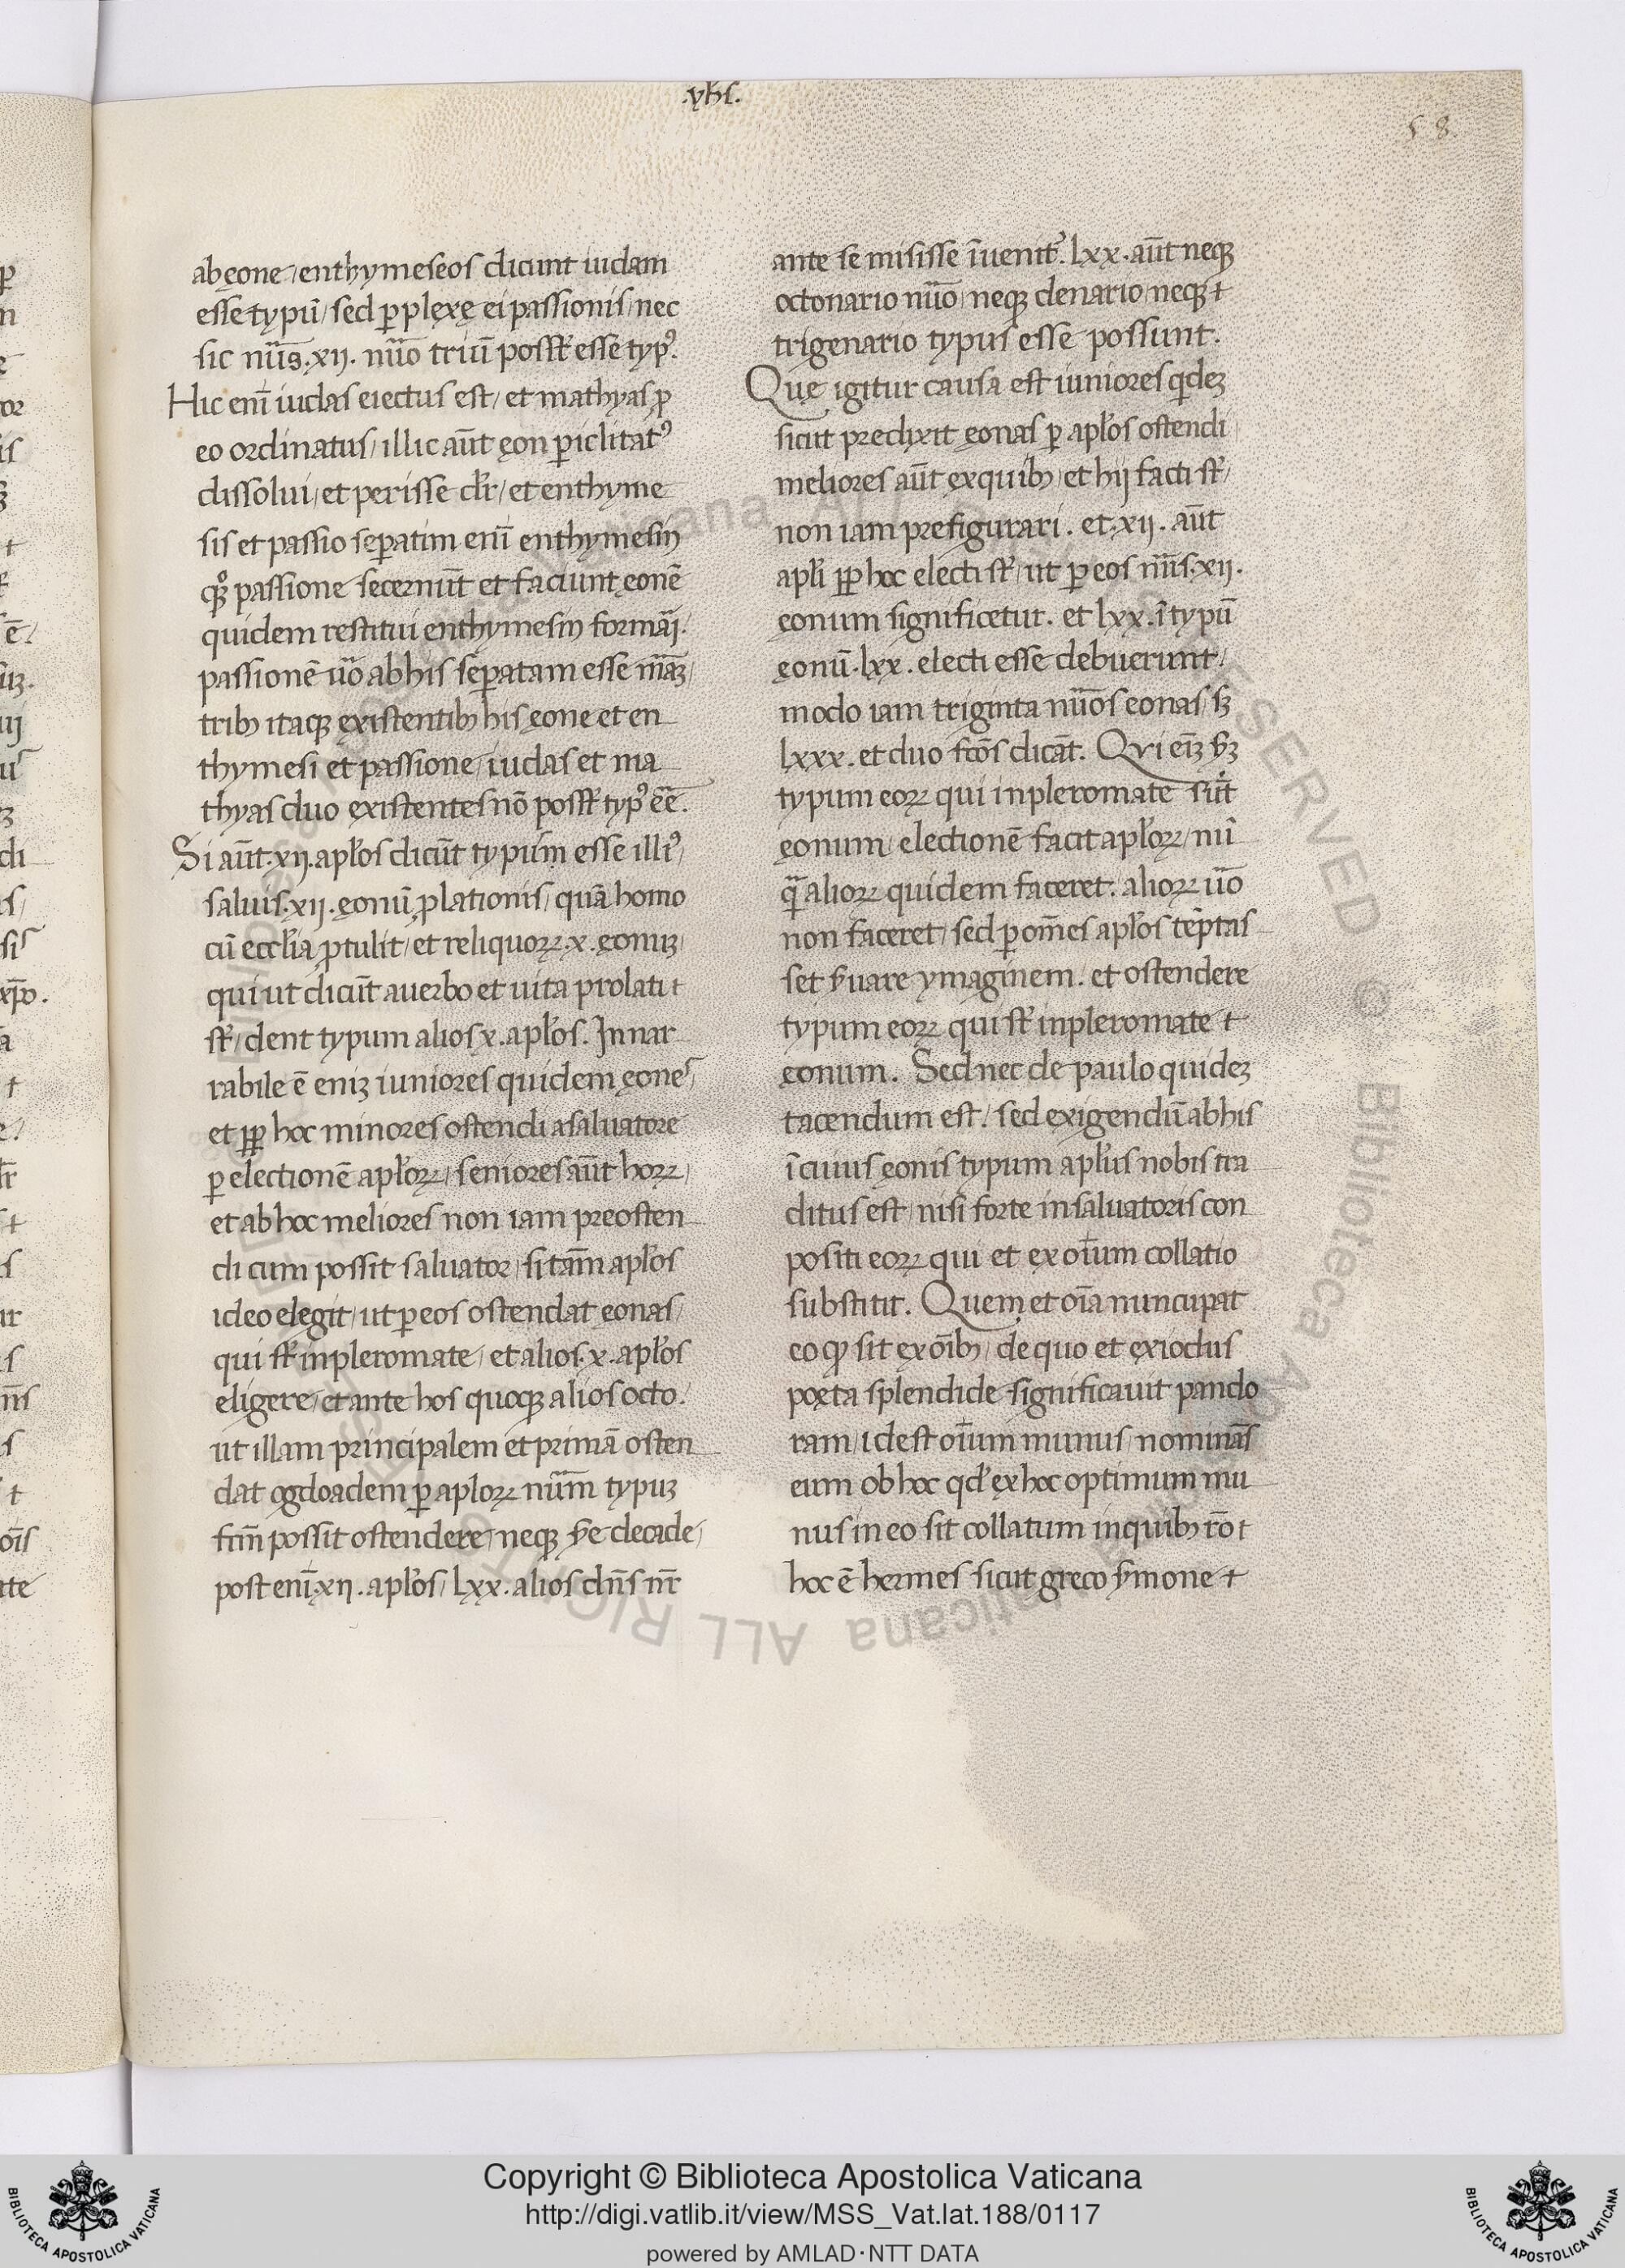 .yhs.
58
ab ęone / enthymeseos dicunt iudam
esse typū / sed ꝑplęxę ei passionis / nec
sic nūs .xij. nūo triū poss̄t esse typꝰ.
Hic enī iudas eiectus est / et mathyas ꝓ
eo ordinatus / illic aūt ęon ꝑiclitatꝰ
dissolui / et perisse dr̄ / et enthyme
sis et passio seꝑatim enī enthymesin
qꝫ passione secernūt et faciunt ęonē
quidem restitui enthymesin formāī.
passionē ūo ab his seꝑatam esse māꝫ /
tribꝫ itaqꝫ ęxistentibꝫ his ęone et en
thymesī et passione / iudas et ma
thyas duo ęxistentes nō poss̄t typꝰ eē̄.
Si aūt .xij. apl̄os dicūt typum esse illiꝰ /
saluis .xij. ęonū ꝓlationis / quā homo
cū ecclīa ꝓtulit / et reliquoꝝ .x. ęonuꝫ /
qui ut dicūt a uerbo et uita prolati t
st̄ / dent typum alios x. apl̄os. Innar
rabile ē eniꝫ iuniores quidem ęones
et ꝓꝑ hoc minores ostendi a saluatore
ꝑ electionē apl̄oꝝ / seniores aūt horꝝ /
et ab hoc meliores non iam preosten
di cum possit saluator / si tam̄ apl̄os
ideo elegit / ut ꝑ eos ostendat eonas /
qui st̄ in pleromate / et alios .x. apl̄os
eligere / et ante hos quoqꝫ alios octo.
ut illam principalem et primā osten
dat ogdoadem ꝑ aploꝝ nūm typuꝫ
fcm̄ possit ostendere / neqꝫ s̄e decade /
post enī .xij. apl̄os / lxx. alios dn̄s nr̄
ante se misisse īuenitꝰ. lxx. aūt neqꝫ
octonario nūo / neqꝫ denario / neqꝫ t
trigenario typus esse possunt.
Quę igitur causa est iuniores qdeꝫ
sicut predixit ęonas ꝑ apl̄os ostendi
meliores aūt ęx quibꝫ / et hij facti st̄ /
non iam prefigurari. et .xij. aūt
apl̄i ꝓꝑ hoc electi st̄ / ut ꝑ eos nūs .xij.
eonum significetur. et lxx. ī typū
ęonū .lxx. electi esse debuerunt /
modo iam triginta nūos eonas / sꝫ
lxxx. et duo fcōs dicāt. Qui eīꝫ s̄ꝫ
typum eoꝝ qui in pleromate sūt
ęonum / electionē facit apl̄oꝝ / nū
q̄ alioꝝ quidem faceret. alioꝝ ūo
non faceret / sed ꝑ om̄es apl̄os tēptas
set s̄uare ymaginem. et ostendere
typum eoꝝ qui st̄ in pleromate t
ęonum. Sed nec de paulo quideꝫ
tacendum est / sed exigendū ab his
ī cuius ęonis typum apl̄us nobis tra
ditus est / nisi forte in saluatoris con
positi eoꝝ qui et ęx oīum collatio
substitit. Quem et oīa nuncupat
eo qꝫ sit ęx oībꝫ / de quo et ęxiodus
poęta splendide significauit pando
ram / id est oīum munus / nominās
eum ob hoc qd̄ ęx hoc optimum mu
nus in eo sit collatum in quibꝫ rō t
hoc ē hermes sicut greco s̄mone t
Copyright © Biblioteca Apostolica Vaticana
http://digi.vatlib.it/view/MSS_Vat.lat.188/0117
powered by AMLAD·NTT DATA